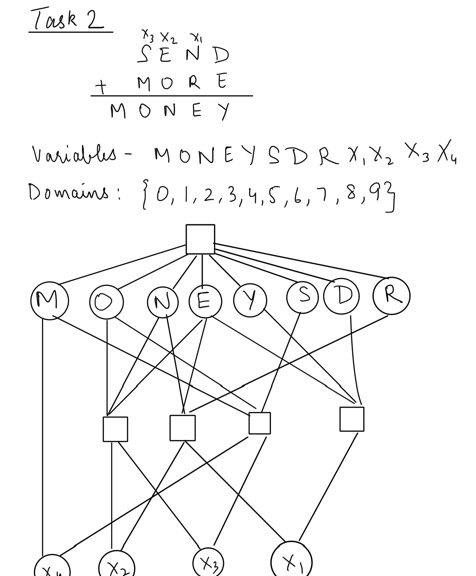 Task 2
x₃ x₂ x₁
S E N D
+ M O R E
M O N E Y
Variables - M O N E Y S D R x₁ x₂ x₃ x₄
Domains : {0, 1, 2, 3, 4, 5, 6, 7, 8, 9}
M O N E Y S D R
x₄ x₂ x₃ x₁